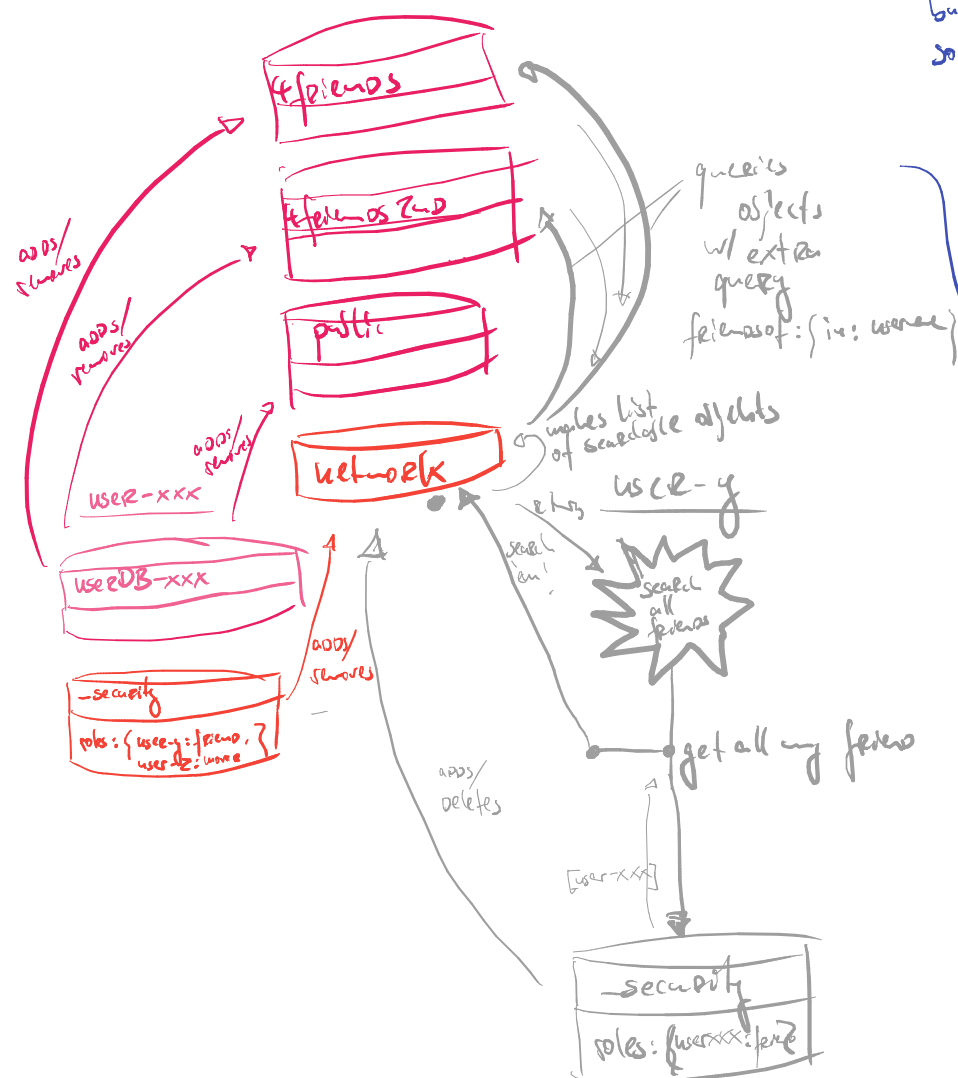 bu
so
4friends
4friends2nd
public
network
adds/
removes
adds/
removes
adds/
removes
user-xxx
userDB-xxx
_security
roles: { user-y: friend,
user-z: }
adds/
removes
queries
objects
w/ extra
query
friendsof: { in: }
makes list
of searchable objects
user-y
search
search
all
friends
get all my friend
adds/
Deletes
[user-xxx]
_security
roles: {userxxx: